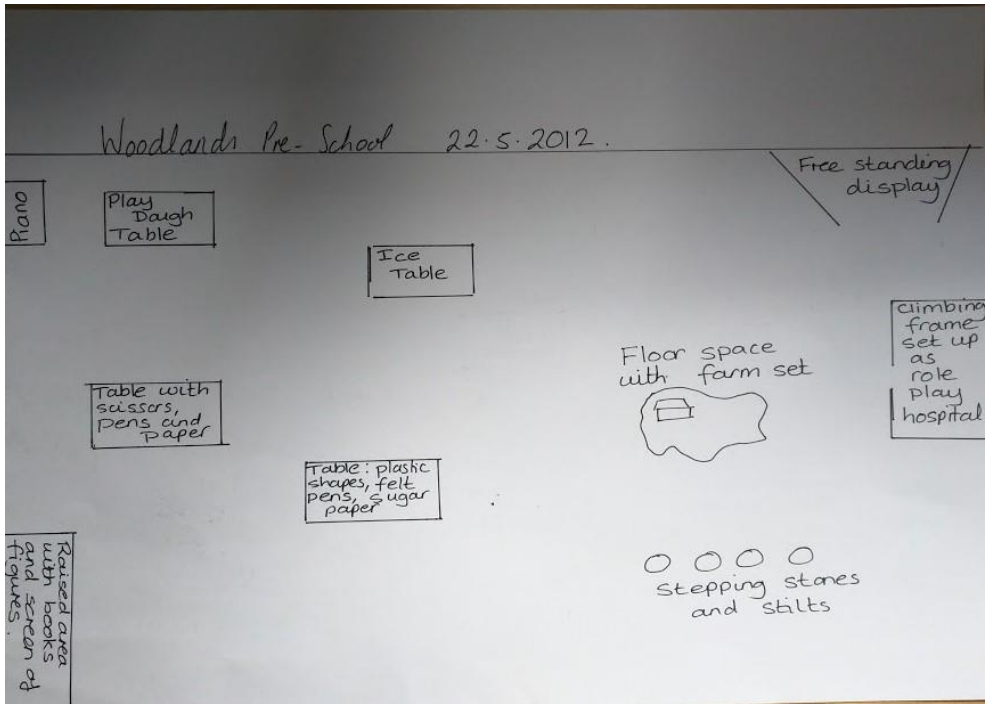 Woodlands Pre-School 22.5.2012.
Free standing
display
Piano
Play
Dough
Table
Ice
Table
climbing
frame
set up
as
role
play
hospital
Floor space
with farm set
Table with
scissors,
pens and
paper
Table: plastic
shapes, felt
pens, sugar
paper
Raised area
with books
and screen of
figures.
Stepping stones
and stilts